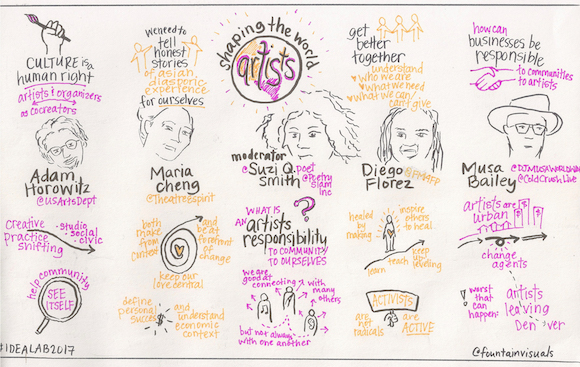 CULTURE is a
human right
artists & organizers
as cocreators
Adam
Horowitz
@USArtsDept
Creative
Practice
Shifting
• studio
• social
• civic
help community
SEE
ITSELF
#IDEALAB2017
we need to
tell
honest
stories
of asian
diasporic
experience
for ourselves
Maria
cheng
@Theatreespirit
both
make
from
context
and
be at
forefront
of
change
keep our
love central
define
personal
success
$
and
understand
economic
context
shaping the world
artists
moderator
@Suzi Q. poet
smith
@Poetry
Slam
Inc
WHAT IS
AN artists
responsibility
?
TO COMMUNITY
TO OURSELVES
we are
good at
connecting
with
many
others
but not always
with one another
get
better
together
understand
• who we are
• what we need
• what we can,
can't give
Diego
Florez
@FM4FP
healed
by
making
inspire
others
to heal
learn
teach
keep
upleveling
ACTIVISTS
are not
radicals
are
ACTIVE
how can
businesses be
responsible
to communities
to artists
Musa
Bailey
@DJMUSAWORLDWIDE
@ColdCrushLive
artists are
urban
change
agents
!
worst
that
can
happen:
artists
leaving
Denver
@fountainvisuals